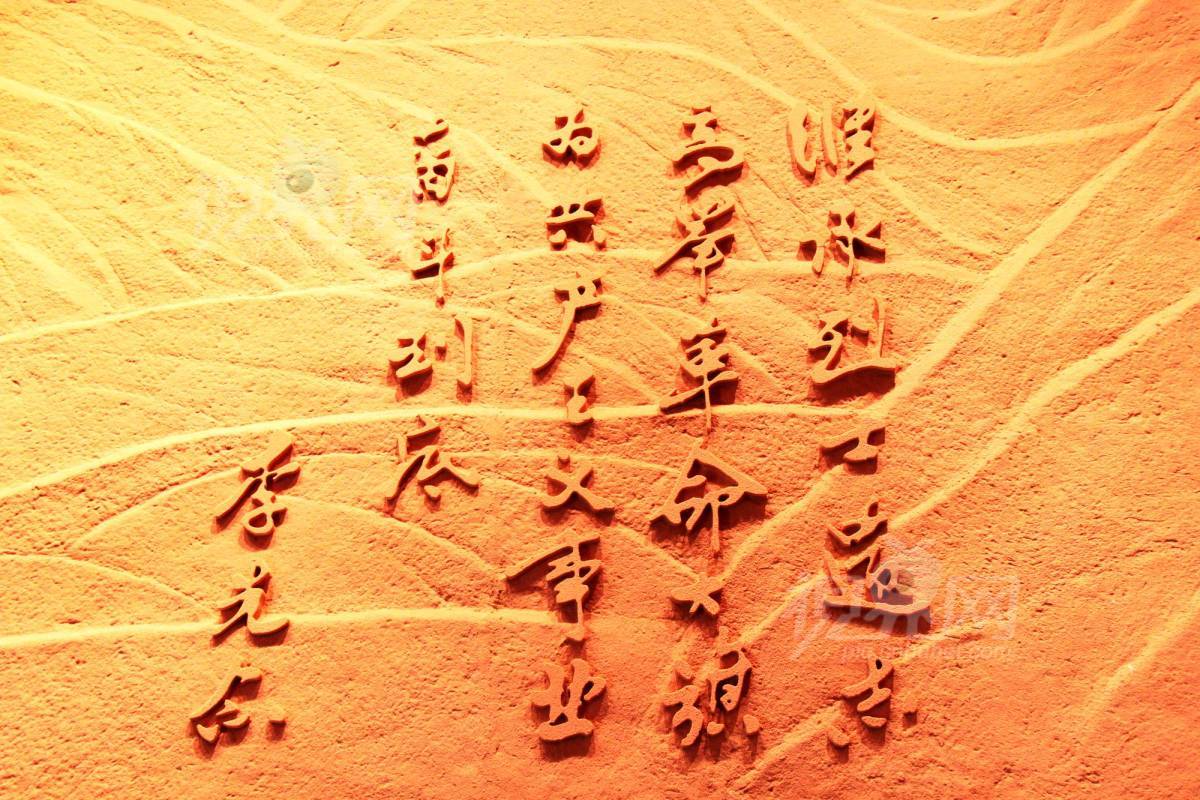 继承烈士遗志
高举革命大旗
为共产主义事业
奋斗到底
李先念
视界网